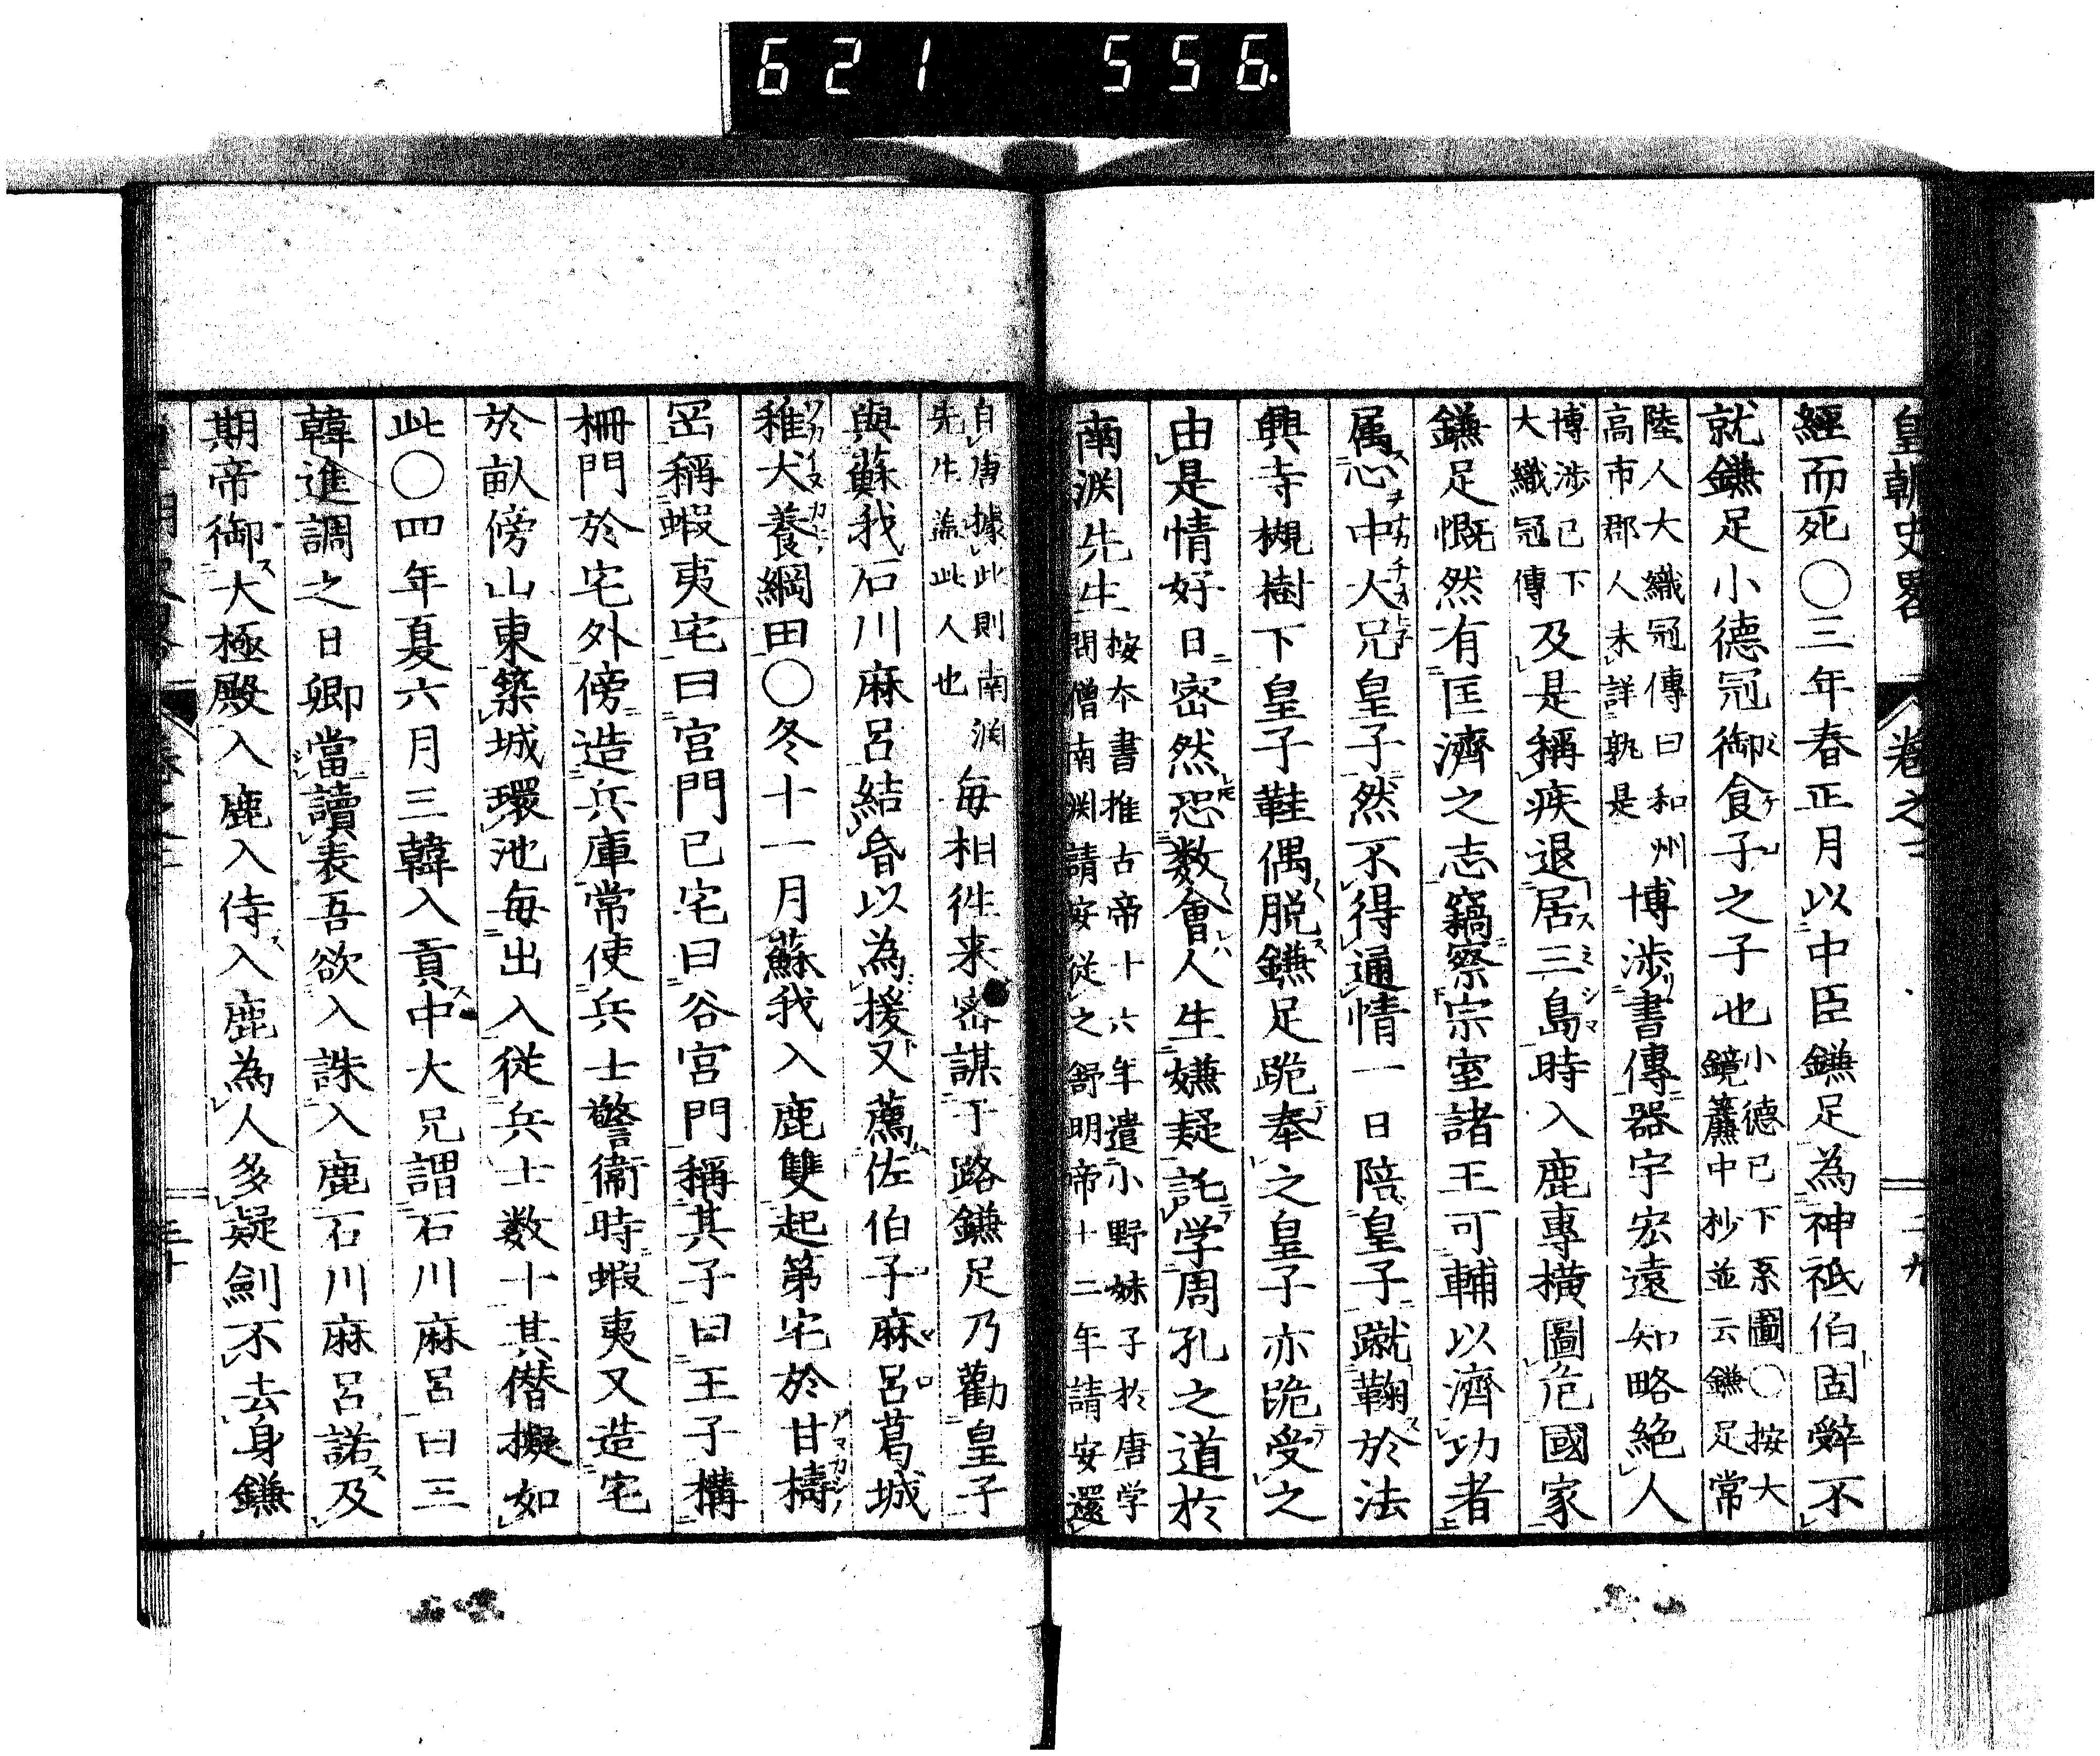 621 556
皇朝史畧 卷之二 二十九
經而死〇三年春正月以中臣鎌足為神祇伯固辤不
就鎌足小德冠御食子之子也小德已下系圖〇按大
鏡簾中抄並云鎌足常
陸人大織冠傳曰和州
高市郡人未詳孰是博涉書傳器宇宏遠知略絶人
博涉已下
大織冠傳及是稱疾退居三島時入鹿專橫圖危國家
鎌足慨然有匡濟之志竊察宗室諸王可輔以濟功者
属心中大兄皇子然不得通情一日陪皇子蹴鞠於法
興寺槻樹下皇子鞋偶脱鎌足跪奉之皇子亦跪受之
由是情好日密然恐数會人生嫌疑託学周孔之道於
南渕先生按本書推古帝十六年遣小野妹子於唐学
問僧南渕請安従之舒明帝十二年請安還
自唐據此則南渕
先生盖此人也每相徃来密謀于路鎌足乃勸皇子
與蘇我石川麻呂結昏以為援又薦佐伯子麻呂葛城
稚犬養綱田〇冬十一月蘇我入鹿雙起第宅於甘檮
岡稱蝦夷宅曰宮門已宅曰谷宮門稱其子曰王子構
柵門於宅外傍造兵庫常使兵士警衞時蝦夷又造宅
於畝傍山東築城環池每出入従兵士数十其僭擬如
此〇四年夏六月三韓入貢中大兄謂石川麻呂曰三
韓進調之日卿當讀表吾欲入誅入鹿石川麻呂諾及
期帝御大極殿入鹿入侍入鹿為人多疑劍不去身鎌